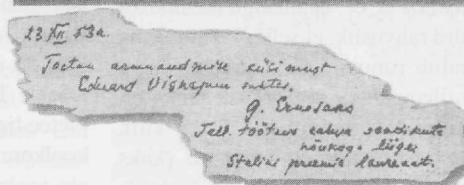 23 XII 53a.
Toetan armuandmise küsimust
Eduard Visnapuu suhtes.
G. Ernesaks
Tall. töötava rahva saadikute
nõukogu liige
Stalini preemia laureaat.